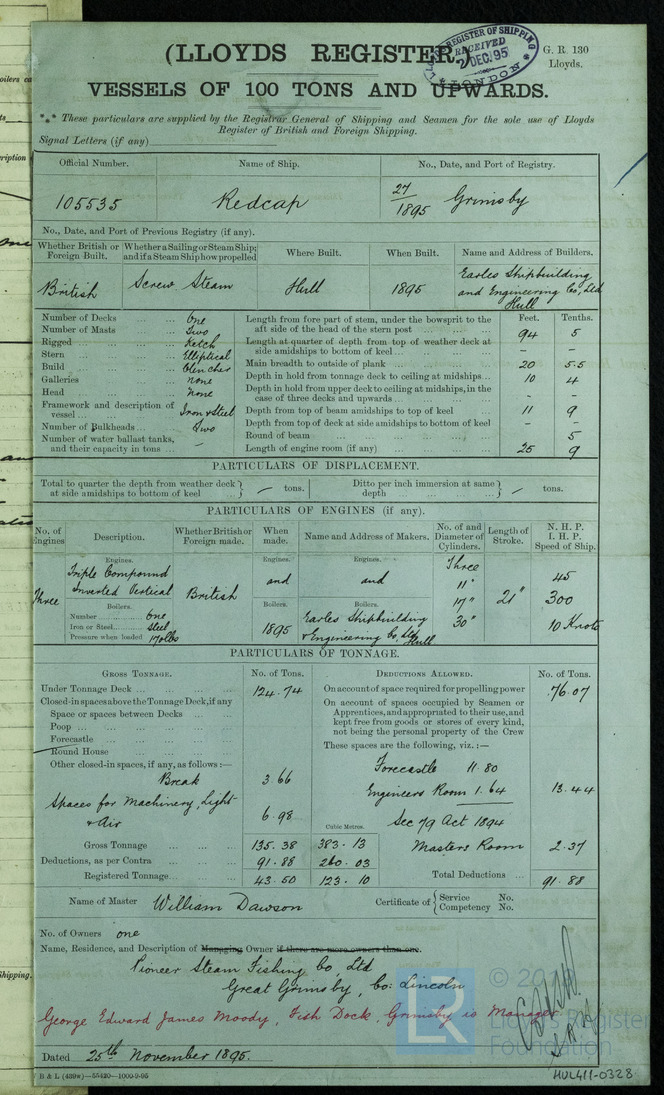 (LLOYDS REGISTER.)
LLOYD'S REGISTER OF SHIPPING
RECEIVED
2 DEC. 95
LONDON
G. R. 130
Lloyds.
VESSELS OF 100 TONS AND UPWARDS.
*** These particulars are supplied by the Registrar General of Shipping and Seamen for the sole use of Lloyds
Register of British and Foreign Shipping.
Signal Letters (if any)
Official Number. Name of Ship. No., Date, and Port of Registry.
105535 Redcap 27/1895 Grimsby
No., Date, and Port of Previous Registry (if any).
Whether British or Foreign Built. Whether a Sailing or Steam Ship; and if a Steam Ship how propelled Where Built. When Built. Name and Address of Builders.
British Screw Steam Hull 1895 Earles Shipbuilding
and Engineering Co, Ltd
Hull
Feet. Tenths.
Number of Decks One
Number of Masts Two
Rigged Ketch
Stern Elliptical
Build Clencher
Galleries none
Head None
Framework and description of
vessel Iron & Steel
Number of Bulkheads Two
Number of water ballast tanks,
and their capacity in tons –
Length from fore part of stem, under the bowsprit to the
aft side of the head of the stern post 94 5
Length at quarter of depth from top of weather deck at
side amidships to bottom of keel – –
Main breadth to outside of plank 20 5.5
Depth in hold from tonnage deck to ceiling at midships 10 4
Depth in hold from upper deck to ceiling at midships, in the
case of three decks and upwards - -
Depth from top of beam amidships to top of keel 11 9
Depth from top of deck at side amidships to bottom of keel - -
Round of beam 5
Length of engine room (if any) 25 9
PARTICULARS OF DISPLACEMENT.
Total to quarter the depth from weather deck
at side amidships to bottom of keel – tons.
Ditto per inch immersion at same
depth – tons.
PARTICULARS OF ENGINES (if any).
No. of Engines Description. Whether British or Foreign made. When made. Name and Address of Makers. No. of and Diameter of Cylinders. Length of Stroke. N. H. P. I. H. P. Speed of Ship.
Engines. Engines. Engines.
Three Triple Compound
Inverted Vertical
British and and Three
11"
17"
30"
21" 45
300
10 Knots
Boilers. Boilers. Boilers.
Number One
Iron or Steel Steel
Pressure when loaded 170 lbs
1895 Earles Shipbuilding
& Engineering Co, Ltd Hull
PARTICULARS OF TONNAGE.
GROSS TONNAGE. No. of Tons. DEDUCTIONS ALLOWED. No. of Tons.
Under Tonnage Deck 124.74
Closed-in spaces above the Tonnage Deck, if any
Space or spaces between Decks
Poop
Forecastle
Round House
Other closed-in spaces, if any, as follows :—
Break 3.66
Spaces for Machinery, Light
& Air 6.98
Cubic Metres.
Gross Tonnage 135.38 383.13
Deductions, as per Contra 91.88 260.03
Registered Tonnage 43.50 123.10
On account of space required for propelling power 76.07
On account of spaces occupied by Seamen or
Apprentices, and appropriated to their use, and
kept free from goods or stores of every kind,
not being the personal property of the Crew
These spaces are the following, viz. :—
Forecastle 11.80
Engineers Room 1.64 13.44
Sec 79 Act 1894
Masters Room 2.37
Total Deductions 91.88
Name of Master William Dawson Certificate of Service No.
Competency No.
No. of Owners one
Name, Residence, and Description of Managing Owner if there are more owners than one.
Pioneer Steam Fishing Co, Ltd
Great Grimsby, Co: Lincoln
George Edward James Moody, Fish Dock, Grimsby is Manager
Dated 25th November 1895.
B & L (439w)—55420—1000-9-95
HUL411-0328
LR
Lloyd's Register
Foundation